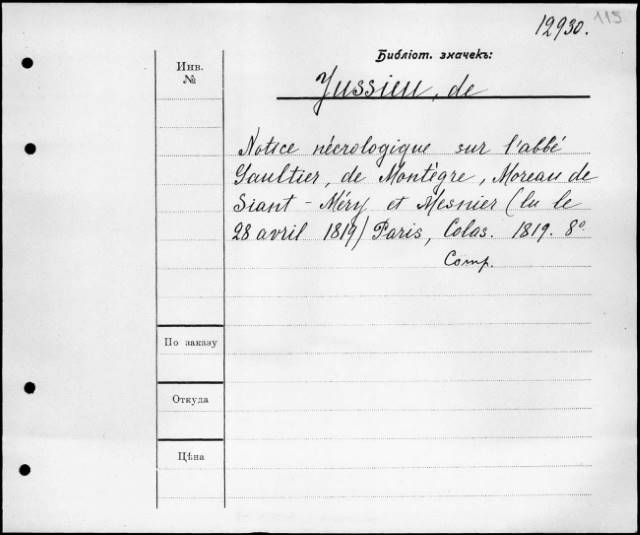 12930. 115
Библіот. значекъ:
Инв.
№
Jussieu, de
Notice nécrologique sur l'abbé
Gaultier, de Montègre, Moreau de
Siant-Méry et Mesnier (lu le
28 avril 1819) Paris, Colas. 1819. 8º.
Comp.
По заказу
Откуда
Цѣна